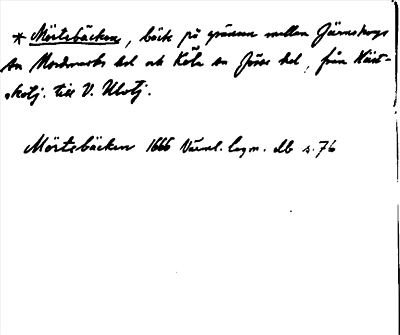 * Mörtebäcken, bäck på gränsen mellan Järnskogs
sn Nordmarks hd och Köla sn Jösse hd, från Häst-
skotj. till V. Ulotj.
Mörtebäcken 1666 Värml. lagm. db s. 76